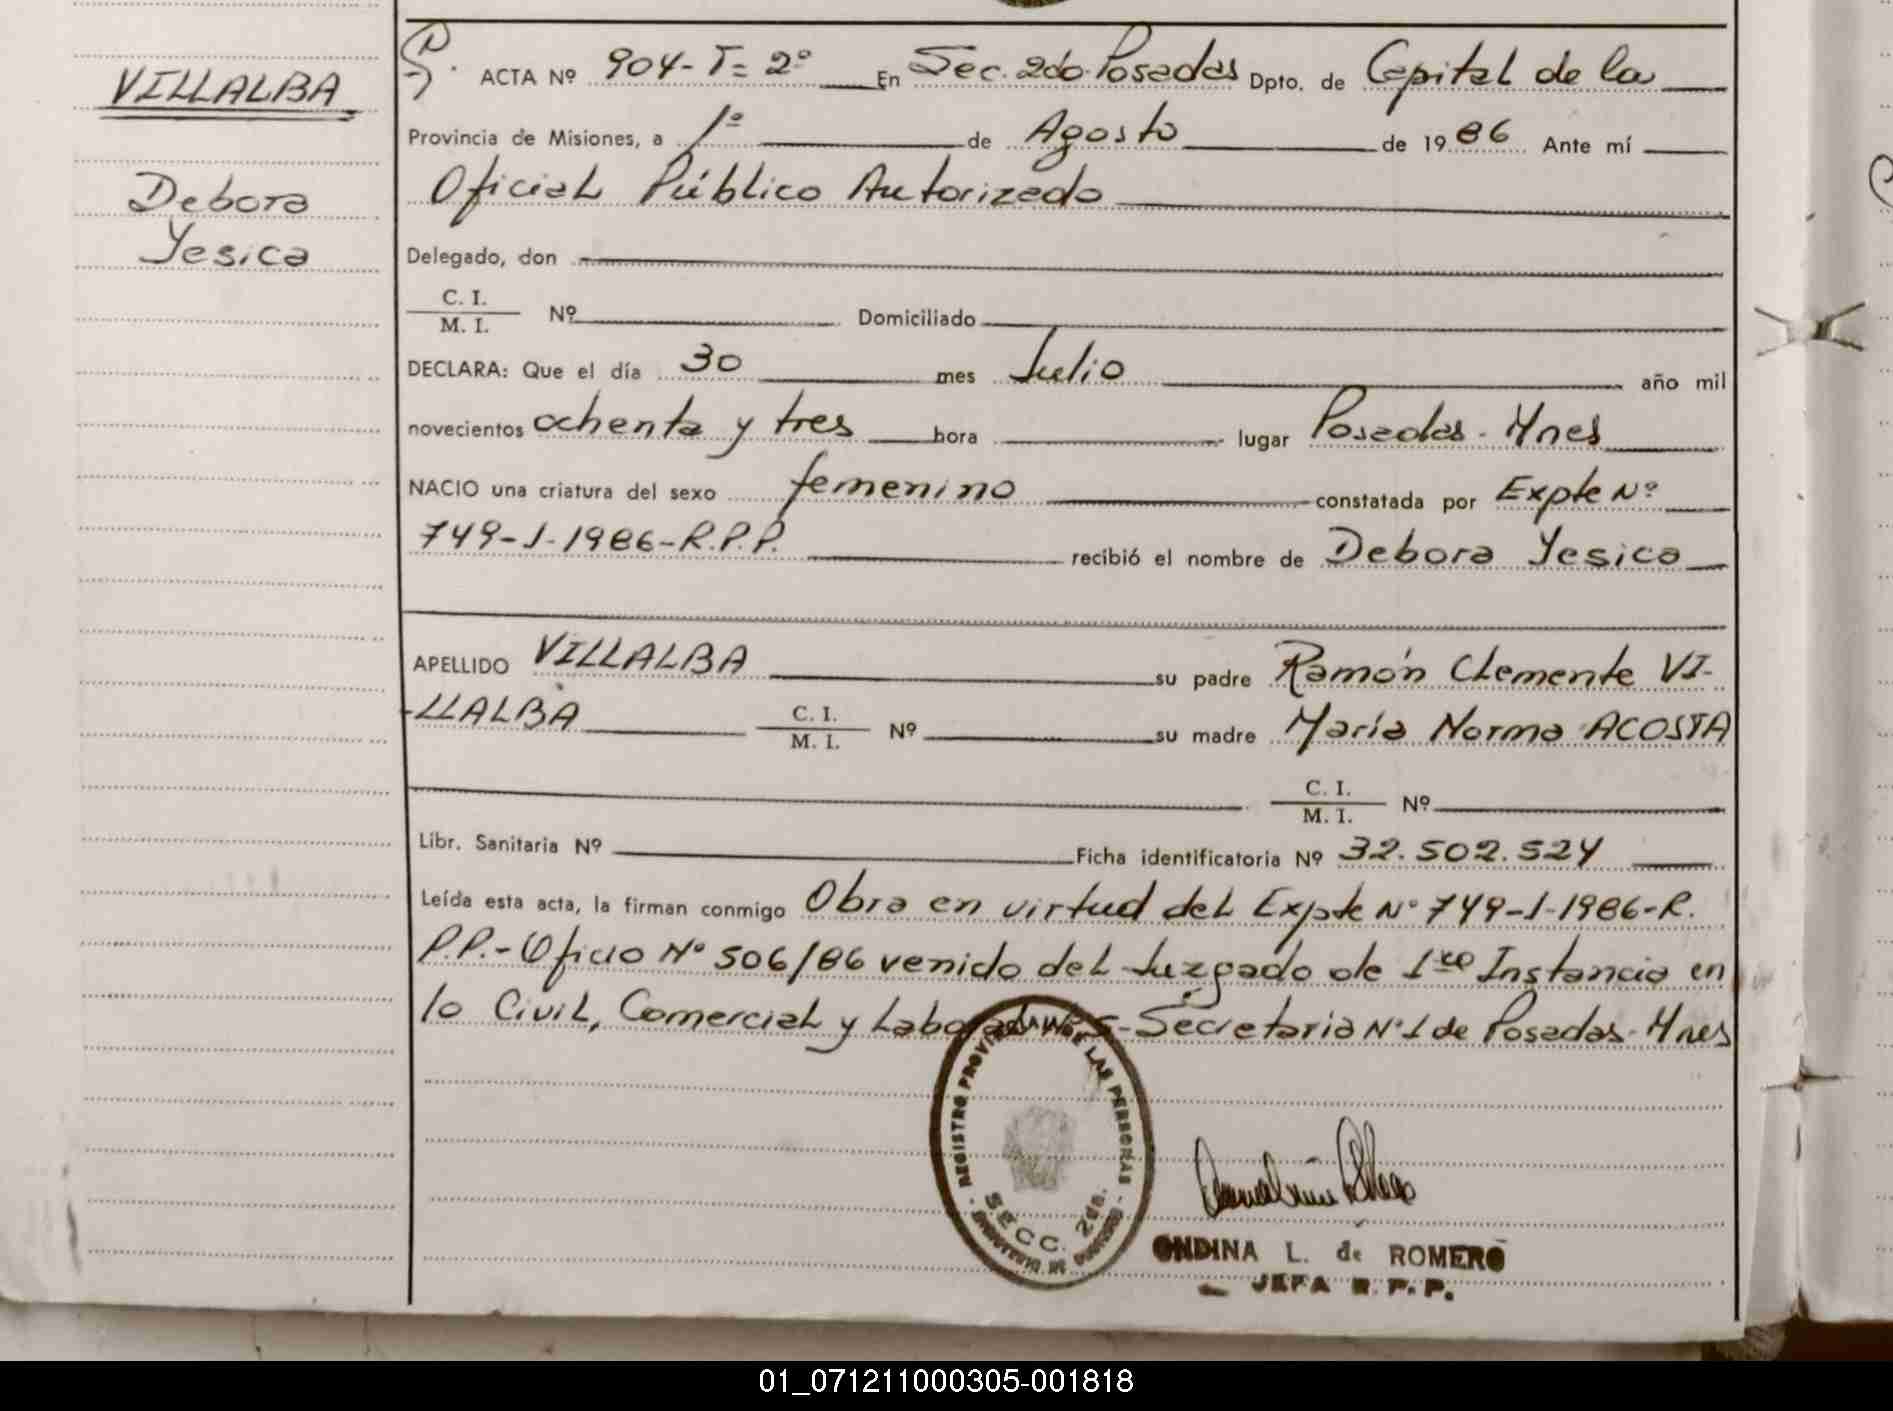 VILLALBA
Debora
Yesica
ACTA Nº 904-T=2º En Sec. 2do. Posadas Dpto. de Capital de la
Provincia de Misiones, a 1º de Agosto de 1986 Ante mí
Oficial Público Autorizado
Delegado, don
C. I.
M. I.
Nº Domiciliado
DECLARA: Que el día 30 mes Julio año mil
novecientos ochenta y tres hora lugar Posadas-Mnes
NACIO una criatura del sexo femenino constatada por Expte Nº
749-J-1986-R.P.P. recibió el nombre de Debora Yesica
APELLIDO VILLALBA su padre Ramón Clemente VI-
-LLALBA C. I. M. I. Nº su madre María Norma ACOSTA
C. I.
M. I.
Nº
Libr. Sanitaria Nº Ficha identificatoria Nº 32.502.524
Leída esta acta, la firman conmigo Obra en virtud del Expte Nº 749-J-1986-R.
P.P.-Oficio Nº 506/86 venido del Juzgado de 1ra Instancia en
lo Civil, Comercial y Laboral Secretaria Nº1 de Posadas-Mnes
REGISTRO PROVINCIAL DE LAS PERSONAS
SECC. 2da.
MINISTERIO DE GOBIERNO
ONDINA L. de ROMERO
JEFA R.P.P.
01_071211000305-001818